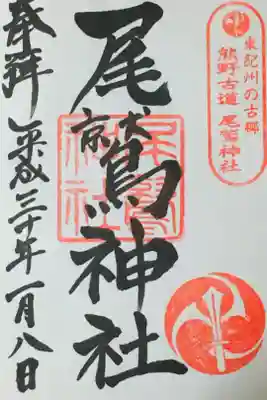 東紀州の古郷
熊野古道 尾鷲神社
尾鷲神社
奉拝 平成三十年一月八日